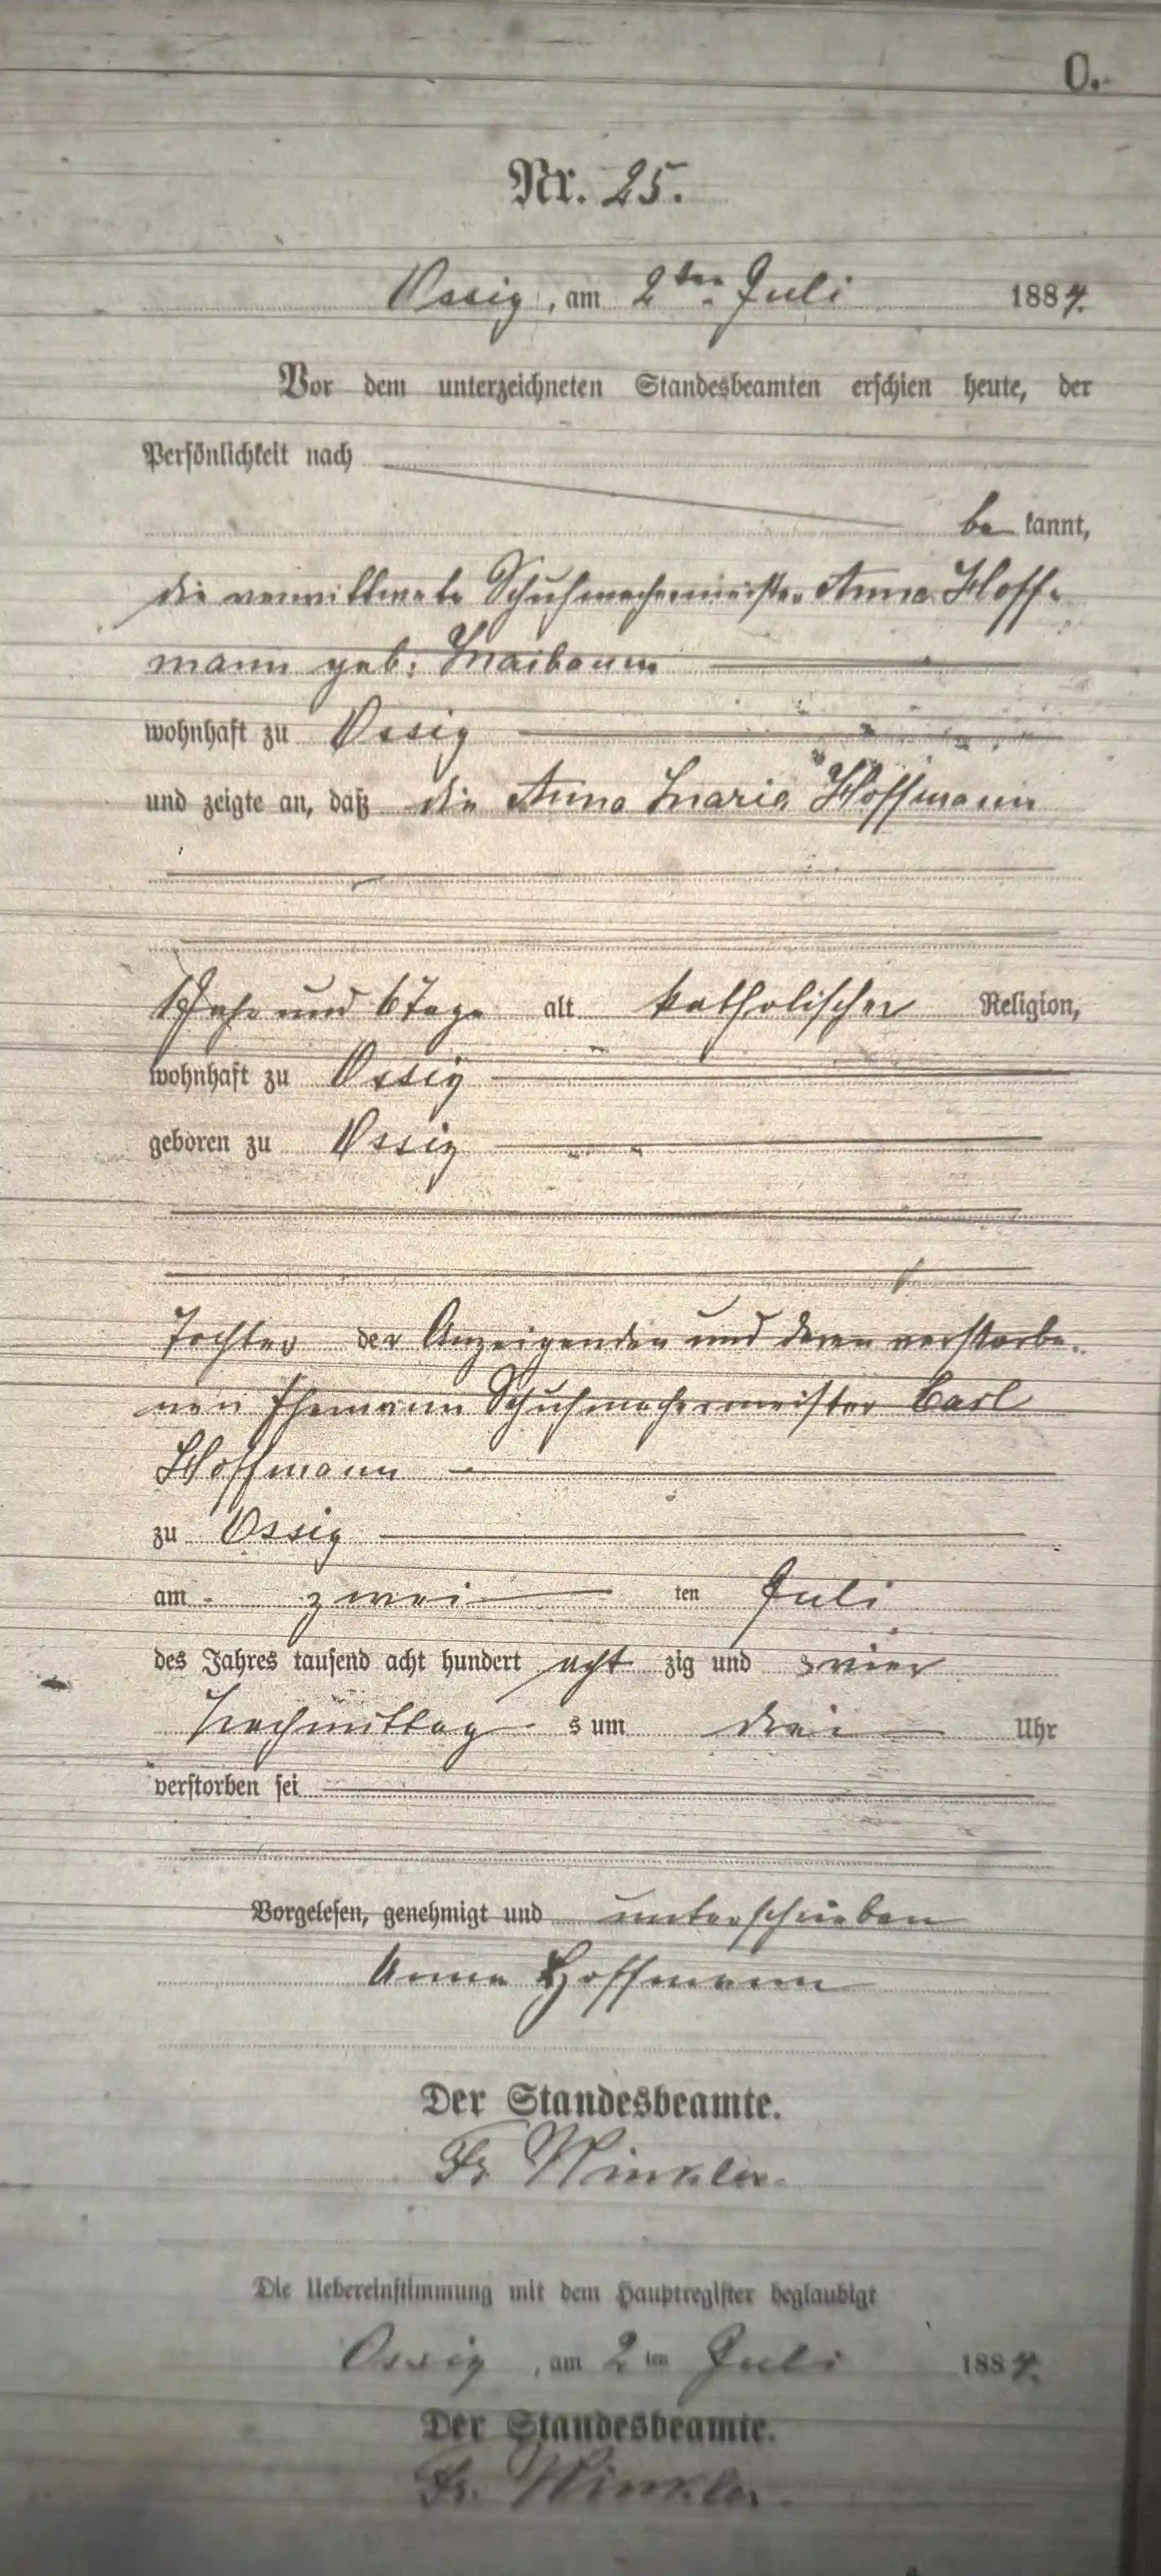 O.
Nr. 25.
Ossig, am 2ten Juli 1884.
Vor dem unterzeichneten Standesbeamten erschien heute, der
Persönlichkeit nach
be kannt,
die verwittwete Schuhmachermeister Anna Hoff-
mann geb. Maibaum
wohnhaft zu Ossig
und zeigte an, daß die Anna Maria Hoffmann
Jahr und 6 Tage alt katholischer Religion,
wohnhaft zu Ossig
geboren zu Ossig
Tochter der Anzeigenden und deren verstorbe-
nen Ehemann Schuhmachermeister Carl
Hoffmann
zu Ossig
am zwei ten Juli
des Jahres tausend acht hundert acht zig und vier
Nachmittag s um drei Uhr
verstorben sei
Vorgelesen, genehmigt und unterschrieben
Anna Hoffmann
Der Standesbeamte.
Fr Winkler.
Die Uebereinstimmung mit dem Hauptregister beglaubigt
Ossig, am 2ten Juli 1884.
Der Standesbeamte.
Fr. Winkler.